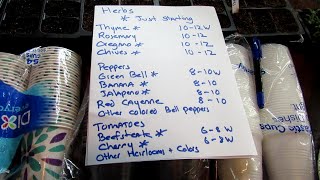 Herbs
* Just starting
Thyme * 10-12W
Rosemary 10-12
Oregano * 10-12
Chives * 10-12
Peppers
Green Bell * 8-10W
Banana * 8-10
Jalapeno * 8-10
Red Cayenne 8-10
Other colored Bell peppers
Tomatoes
Beefsteake * 6-8W
Cherry * 6-8W
Other Heirloom + Colors
Dixie